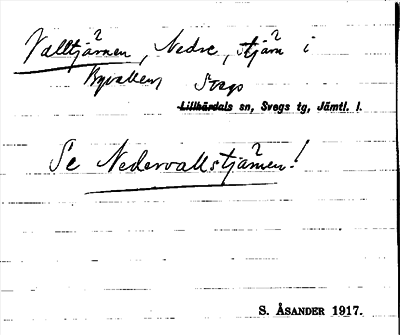 Valltjärnen, Nedre, tjärn i
Byvallen, Svegs
Lillhärdals sn, Svegs tg, Jämtl. l.
Se Nedervallstjärnen!
S. ÅSANDER 1917.